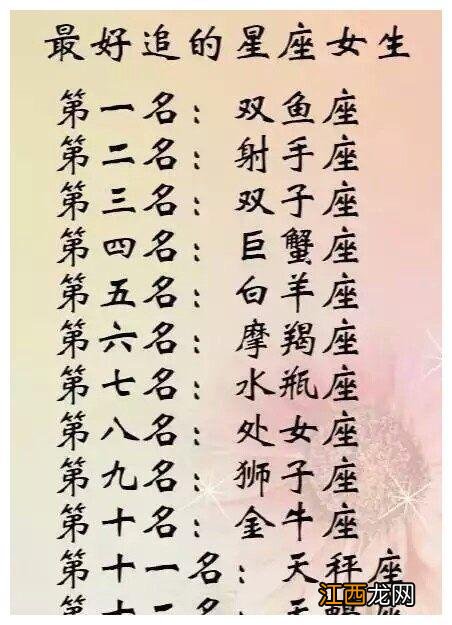 最好追的星座女生
第一名：双鱼座
第二名：射手座
第三名：双子座
第四名：巨蟹座
第五名：白羊座
第六名：摩羯座
第七名：水瓶座
第八名：处女座
第九名：狮子座
第十名：金牛座
第十一名：天秤座
第十二名：天蝎座
江西龙网